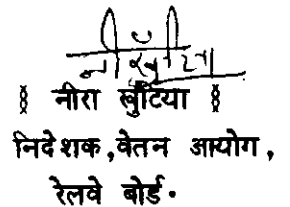 नीरा खुंटिया
निदेशक,वेतन आयोग,
रेलवे बोर्ड.